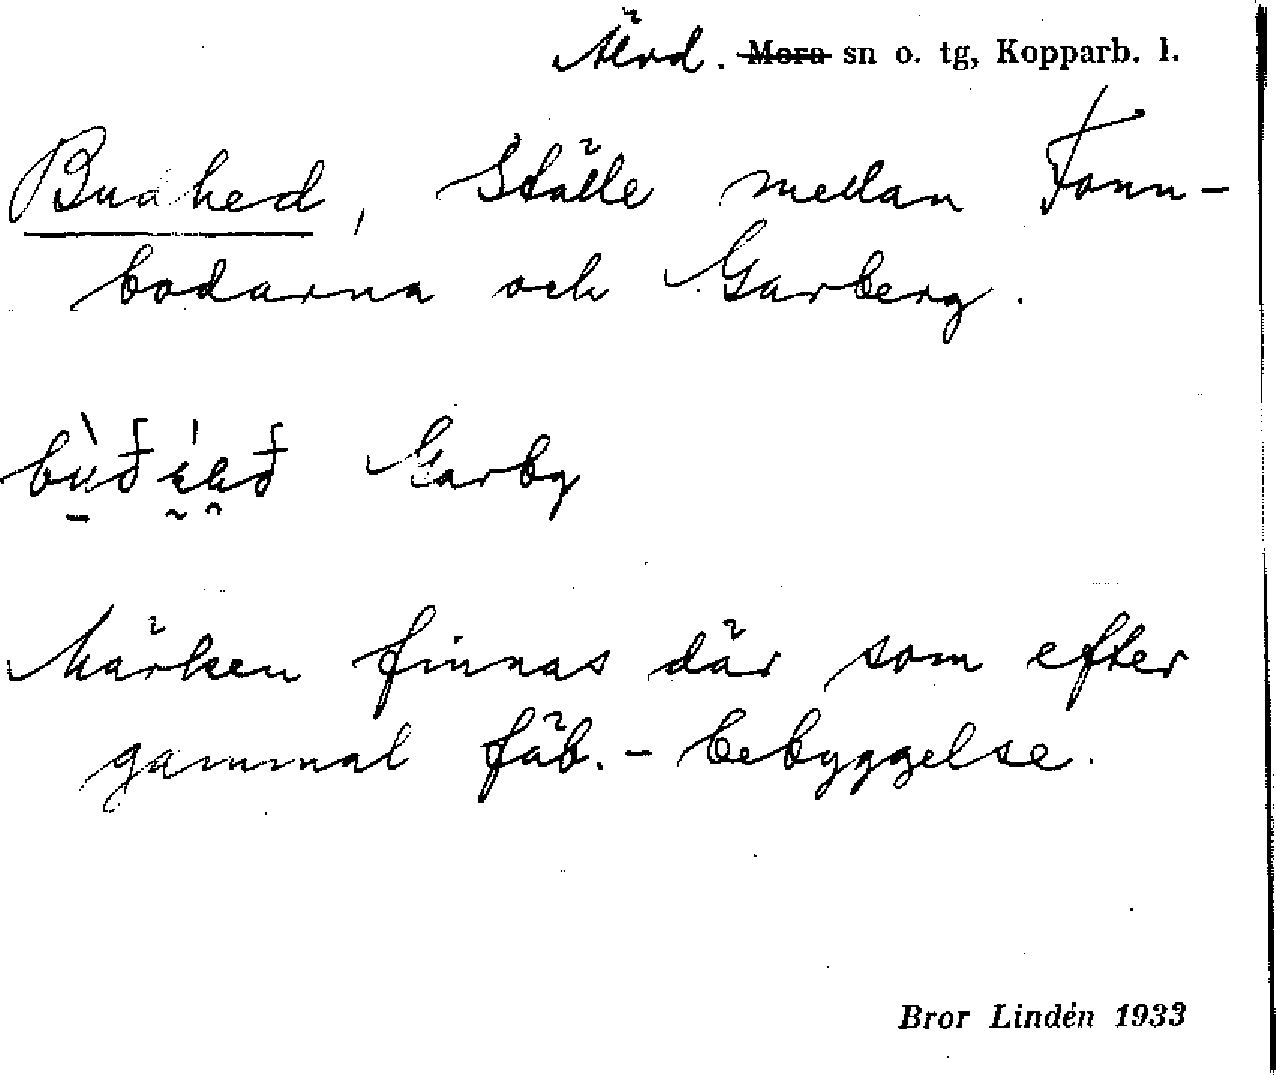 Älvd. Mora sn o. tg, Kopparb. l.
Buåhed, Ställe mellan Fonn-
bodarna och Garberg.
Garby
Märken finnas där som efter
gammal fäb.-bebyggelse.
Bror Lindén 1933